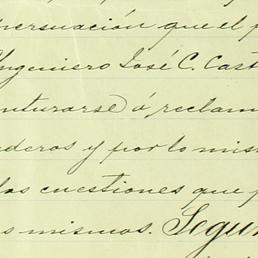 persuación que el p
Ingeniero José C. Cast
nturarse á reclam
deros y por lo mism
las cuestiones que p
s mismos. Segun